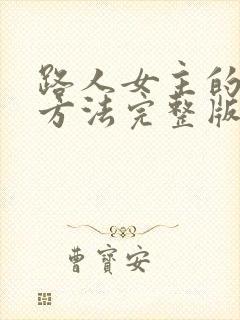 路人女主的
方法完整版
曹寳安